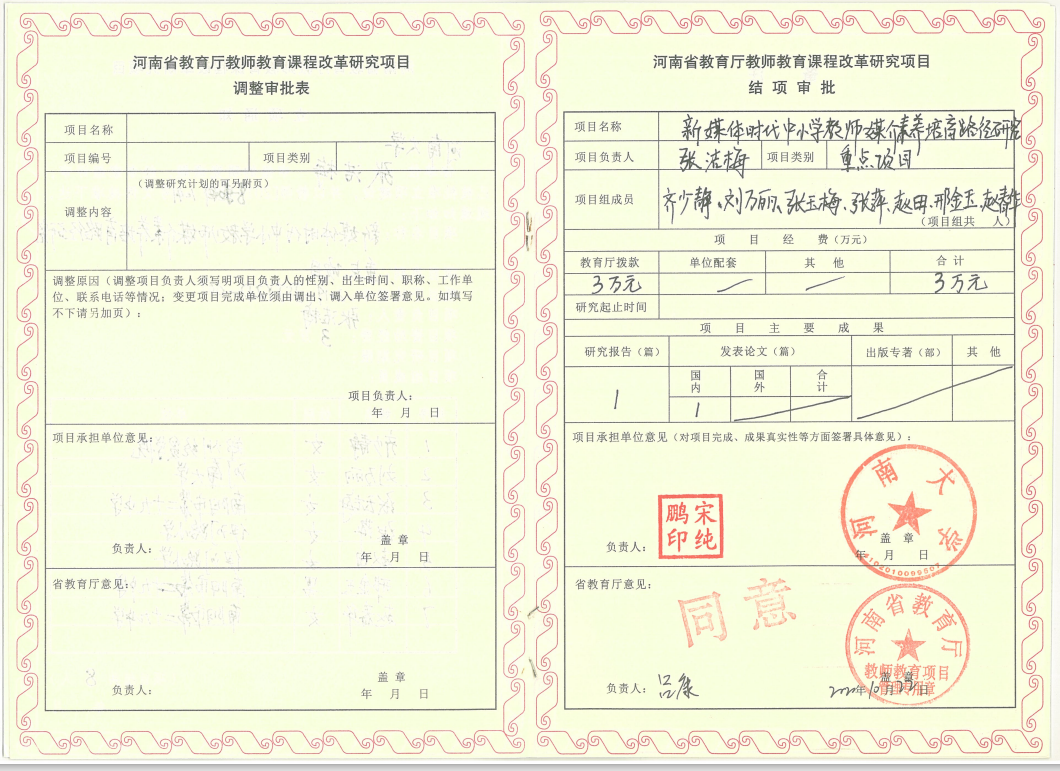 河南省教育厅教师教育课程改革研究项目
调整审批表
项目名称
项目编号
项目类别
调整内容
（调整研究计划的可另附页）
调整原因（调整项目负责人须写明项目负责人的性别、出生时间、职称、工作单
位、联系电话等情况；变更项目完成单位须由调出、调入单位签署意见。如填写
不下请另加页）：
项目负责人：
年 月 日
项目承担单位意见：
盖 章
负责人：
年 月 日
省教育厅意见：
盖 章
负责人：
年 月 日
河南省教育厅教师教育课程改革研究项目
结 项 审 批
项目名称 新媒体时代中小学教师媒介素养培育路径研究
项目负责人 张洁梅 项目类别 重点项目
项目组成员 齐少静、刘万丽、张玉梅、张萍、赵田、邢金玉、赵春
（项目组共 人）
项 目 经 费（万元）
教育厅拨款 单位配套 其 他 合 计
3万元 3万元
研究起止时间
项 目 主 要 成 果
研究报告（篇） 发表论文（篇） 出版专著（部） 其 他
国内 国外 合计
1 1
项目承担单位意见（对项目完成、成果真实性等方面签署具体意见）：
河南大学
宋纯鹏印
盖 章
负责人：
年 月 日
省教育厅意见：
同意
河南省教育厅
教师教育项目
管理专用章
盖 章
负责人：吕康
年10月 日